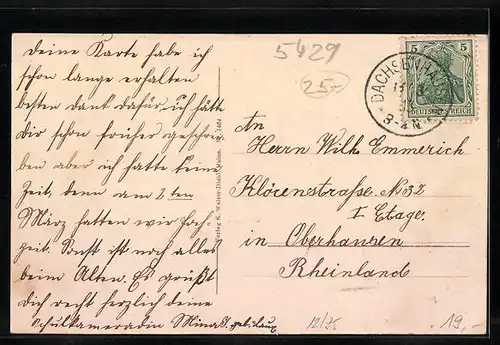 5429
25-
Deine Karte habe ich
schon lange erhalten
besten Dank dafür, ich hätte
Dir schon früher geschrie-
ben aber ich hatte keine
Zeit, denn am 2 ten
März hatten wir Hoch-
zeit. Sonst ist noch alles
beim Alten. Es grüßt
Dich recht herzlich deine
Schulkameradin Mina geb. Laux
DACHSENHAUSEN
3-4 N
5 5
DEUTSCHES REICH
An
Herrn Wilh. Emmerich
Klörenstraße N: 32
I Etage.
in Oberhausen
Rheinland
12/25
19,-